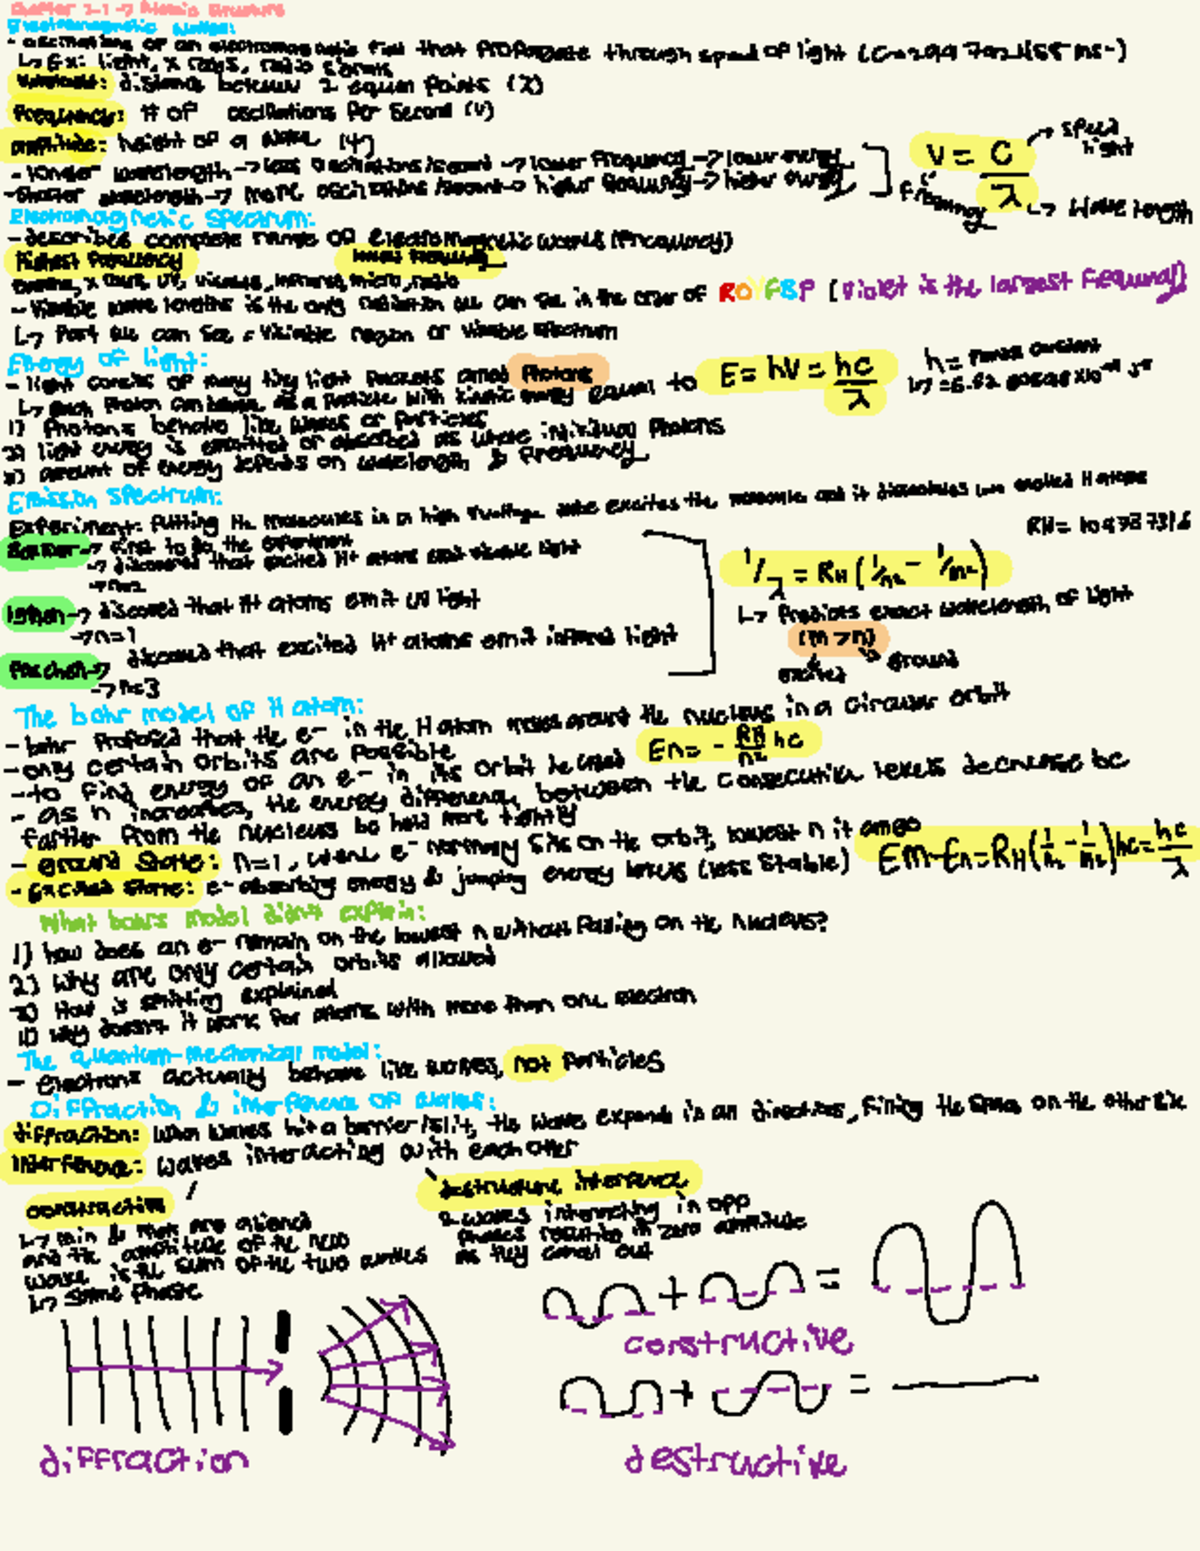 Chapter 2.1 -> Atomic Structure
Electromagnetic waves:
- oscillations of an electromagnetic field that propagate through speed of light
↳ Ex: light, x rays, radio
distance between 2 equal points (λ)
frequency: # of oscillations per second (v)
amplitude: height of a wave
- longer wavelength -> less oscillations/second -> lower frequency -> lower energy
- shorter wavelength -> more oscillations/second -> higher frequency -> higher energy
V = C/λ
speed light
frequency
↳ wave length
Electromagnetic Spectrum:
- describes complete range of electromagnetic waves (frequency)
highest frequency
lowest frequency
gamma, x rays, UV, visible, infrared, micro, radio
- visible wave lengths is the only radiation we can see in the order of ROYGBP (violet is the largest frequency)
↳ part we can see = visible region or visible spectrum
Energy of light:
- light consits of many tiny light packets called Photons
↳ each photon can behave as a particle with kinetic energy equal to E = hV = hc/λ
h = Planck constant
1) Photons behave like waves or particles
2) light energy is emitted or absorbed as whole individual photons
3) amount of energy depends on wavelength & frequency
Emission Spectrum:
Experiment: putting H₂ molecules in a high voltage tube excites the molecule and it dissociates into excited H atoms
Balmer -> first to do the experiment
-> discovered that excited H atoms emit visible light
-> n=2
lyman -> discovered that H atoms emit UV light
-> n=1
Paschen -> discovered that excited H atoms emit infrared light
-> n=3
1/λ = RH (1/n² - 1/m²)
↳ Predicts exact wavelength of light
(m > n)
excited
ground
The bohr model of H atom:
- bohr proposed that the e- in the H atom moves around the nucleus in a circular orbit
- only certain orbits are possible
- to find energy of an e- in its orbit he created En = - RH/n² hc
- as n increases, the energy difference between the consecutive levels decrease bc
farther from the nucleus
- ground state: n=1, where e- normally sits on the orbit, lowest n
- Excited state: e- absorbing energy & jumping energy levels (less stable)
What bohrs model didn't explain:
1) how does an e- remain on the lowest n without falling on the nucleus?
2) why are only certain orbits allowed
3) How is splitting explained
why doesn't it work for atoms with more than one electron
The quantum-mechanical model:
- electrons actually behave like waves, not particles
Diffraction & interference of waves:
diffraction: when waves hit a barrier/slit, the wave expands in all directions, filling the space on the other side
Interference: waves interacting with each other
constructive
↳ min & max are aligned
and the amplitude of the new
wave is the sum of the two waves
↳ same phase
destructive interference
2 waves interacting in opp
phases resulting in zero amplitude
as they cancel out
constructive
diffraction
destructive